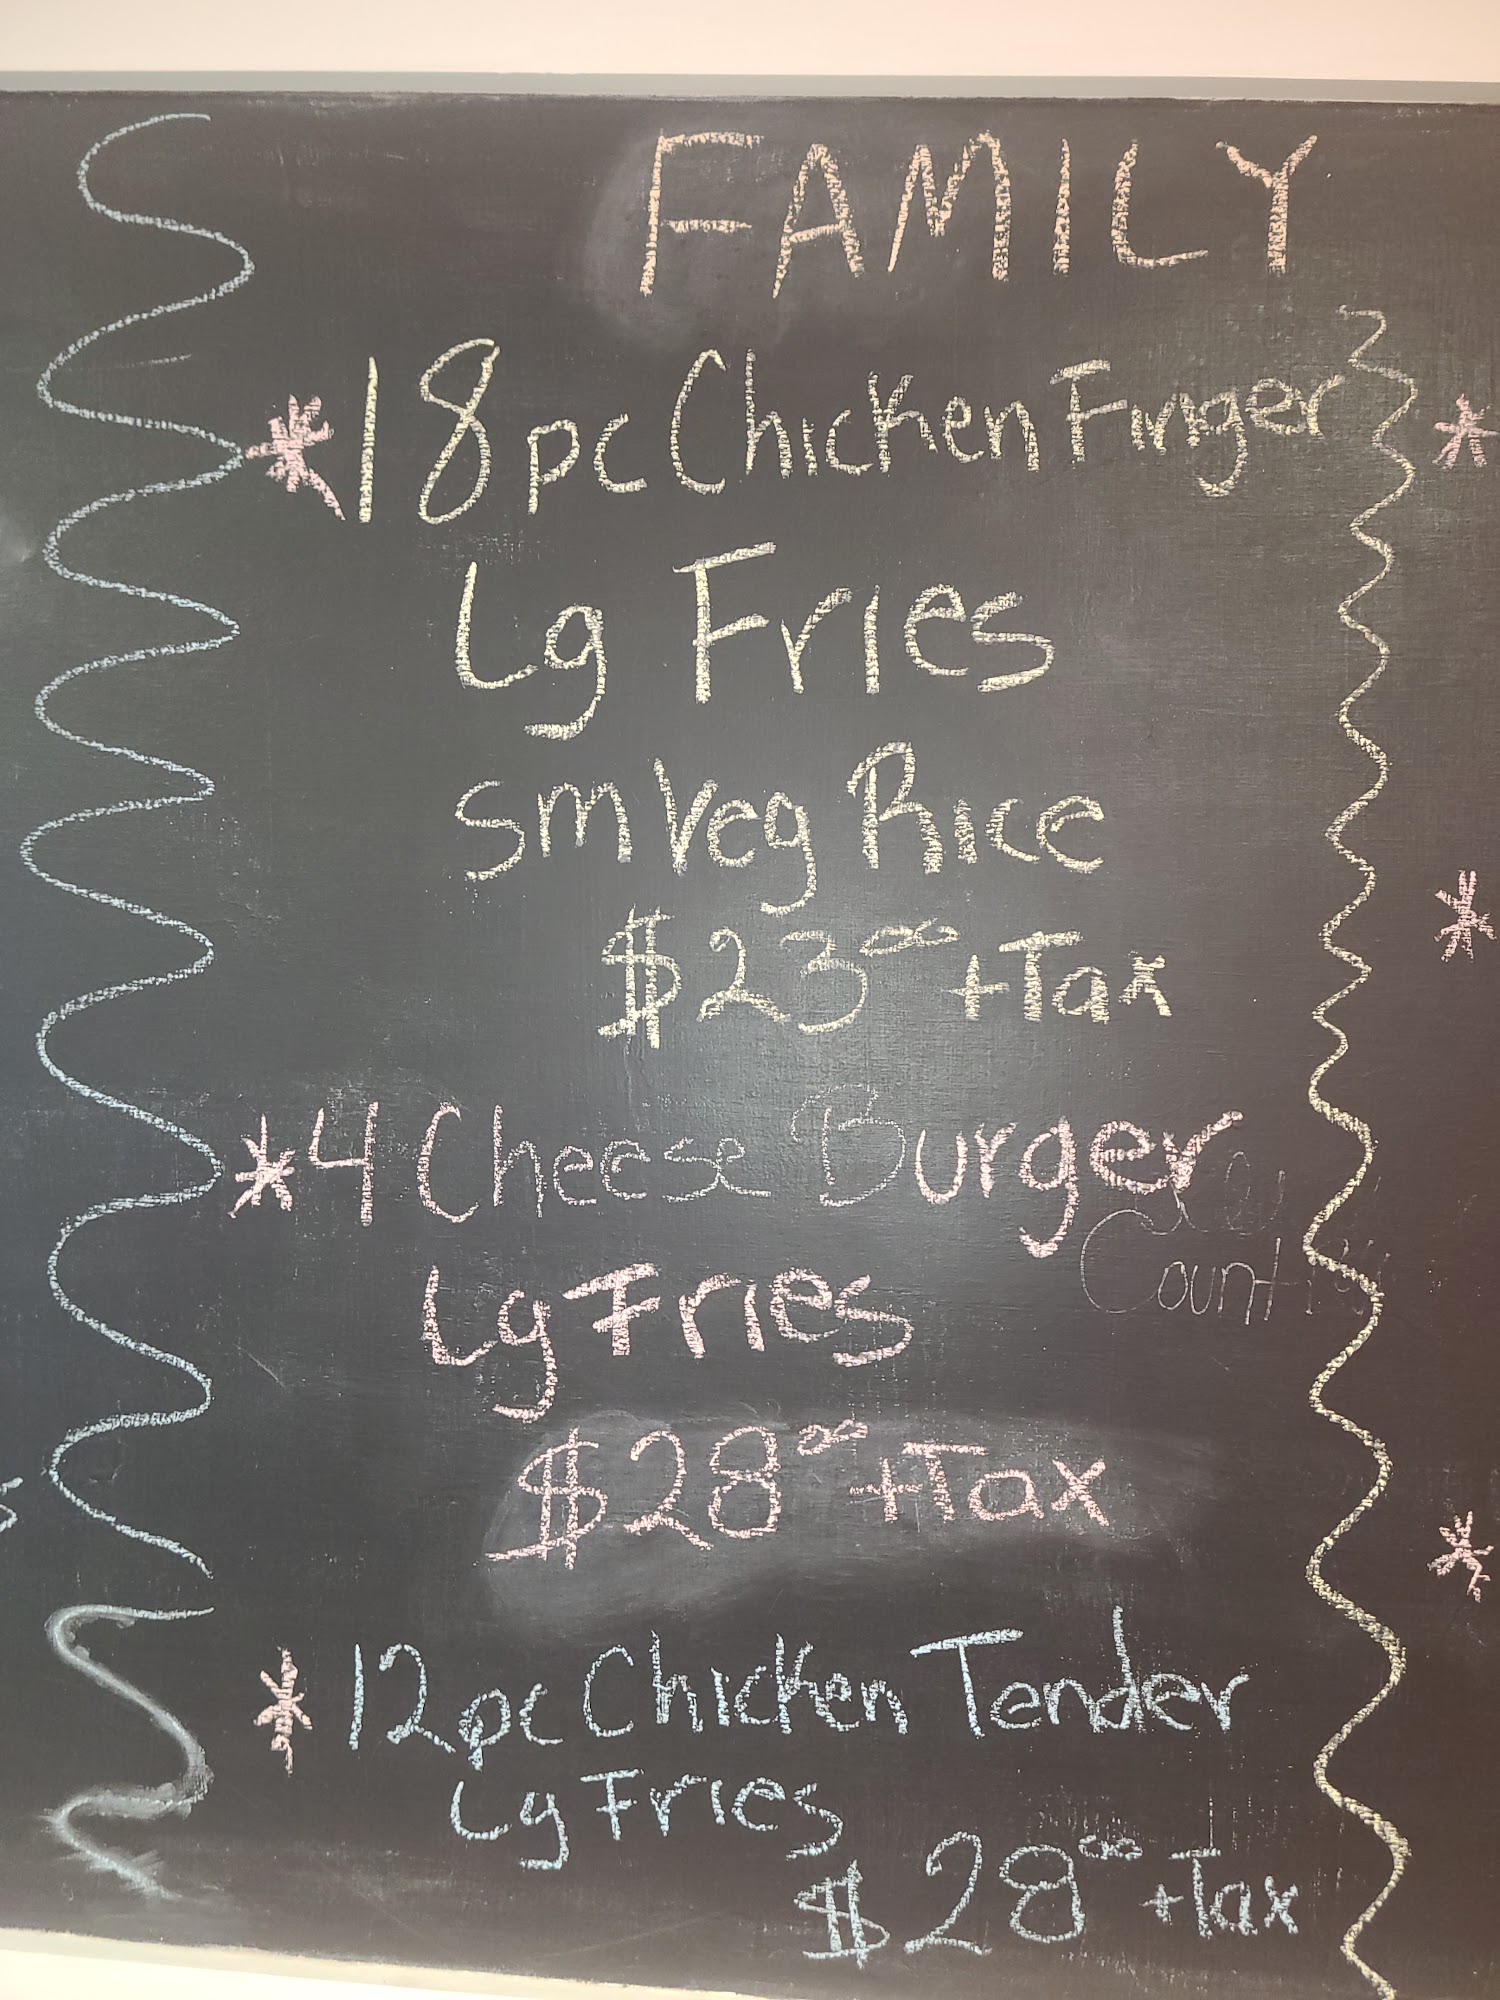 FAMILY
*18pc Chicken Finger
Lg Fries
Sm Veg Rice
$23⁰⁰ +Tax
*4 Cheese Burger
Lg Fries
$28⁰⁰ +Tax
*12pc Chicken Tender
Lg Fries
$28⁰⁰ +Tax